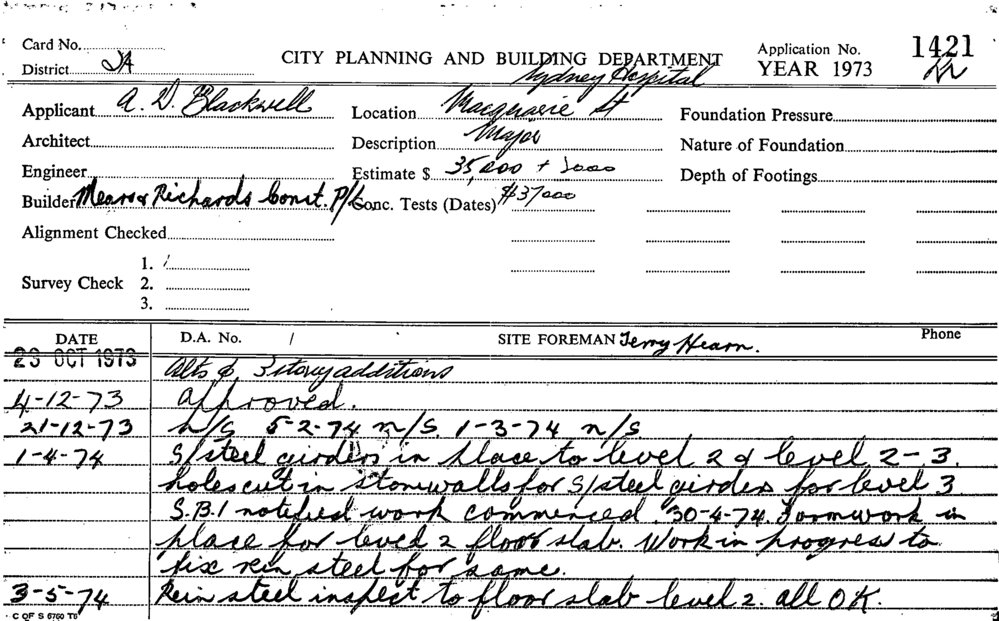 Card No.
CITY PLANNING AND BUILDING DEPARTMENT
Application No. 1421
District 2A
YEAR 1973
Sydney Hospital
Applicant A. D. Blackwell
Location Macquarie St
Foundation Pressure
Architect
Description Major
Nature of Foundation
Engineer
Estimate $ 35,000 + 2000
Depth of Footings
Builder Mears & Richards Const. P/L
Conc. Tests (Dates) $37000
Alignment Checked
Survey Check
1.
2.
3.
DATE D.A. No. / SITE FOREMAN Terry Hearn. Phone
23 OCT 1973 Alts & 3 storey additions
4-12-73 Approved.
21-12-73 n/S 5-2-74 n/S. 1-3-74 n/S
1-4-74 S/steel girders in place to level 2 & level 2-3.
holes cut in stone walls for S/steel girders for level 3
S.B.I notified work commenced. 30-4-74. Formwork in
place for level 2 floor slab. Work in progress to
fix rein steel for same.
3-5-74 Rein steel inspect to floor slab level 2. all OK.
C OF S 6760 T6